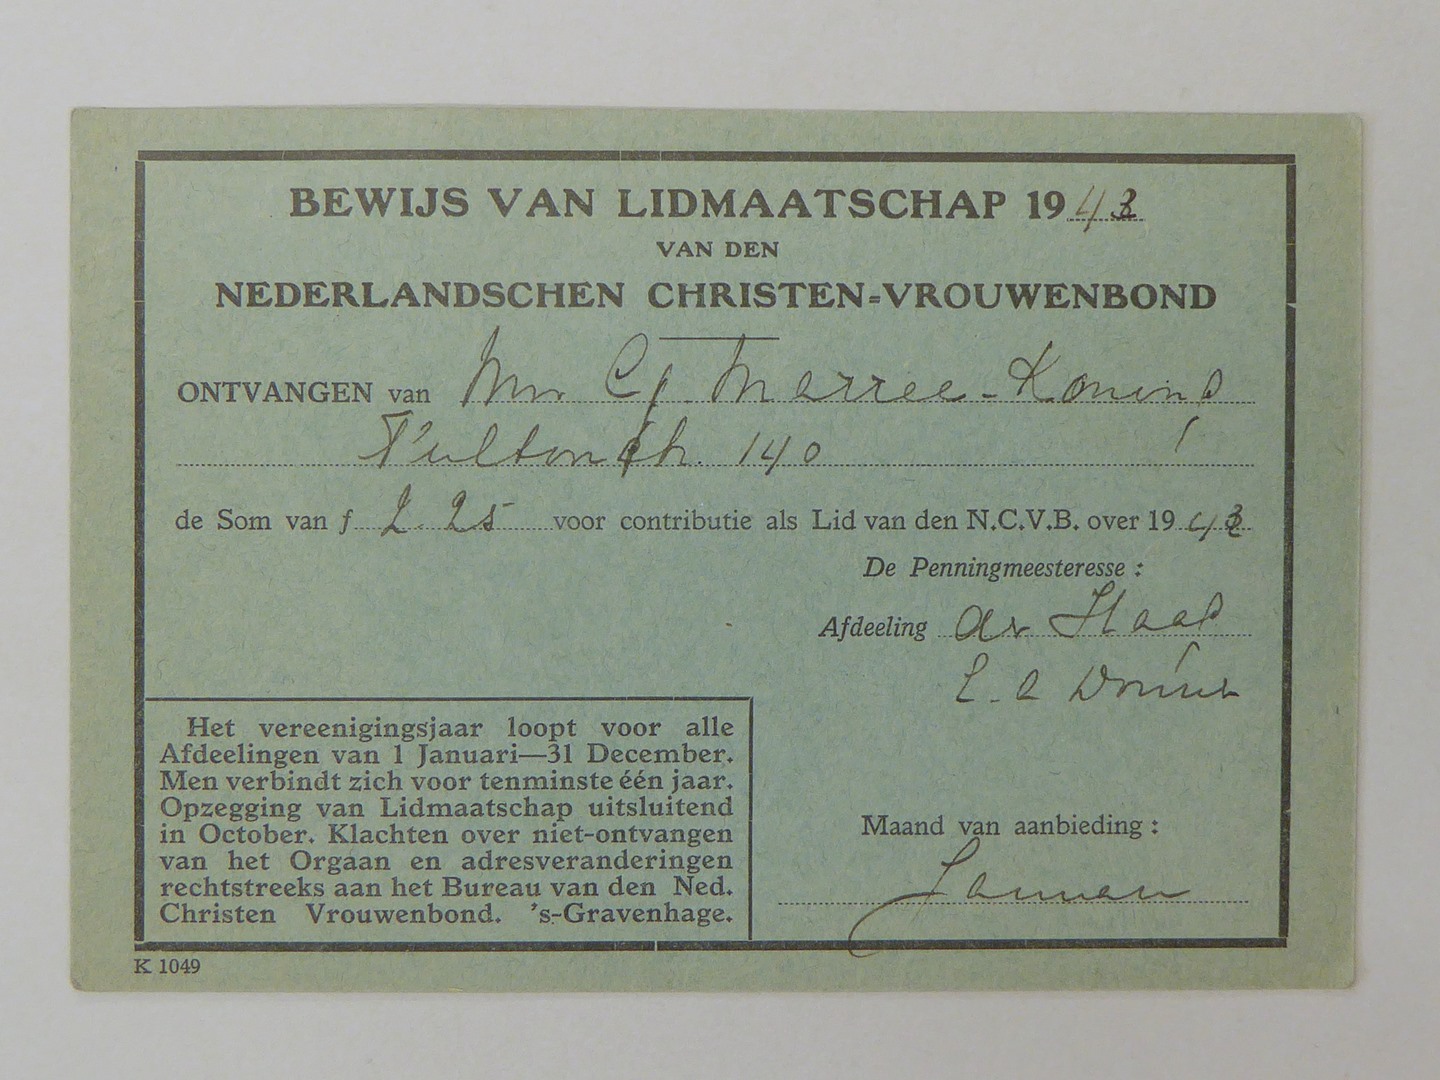 BEWIJS VAN LIDMAATSCHAP 1943
VAN DEN
NEDERLANDSCHEN CHRISTEN=VROUWENBOND
ONTVANGEN van Mvr Cg. Marree-Koning
Fultonstr. 140
de Som van f 2.25 voor contributie als Lid van den N.C.V.B. over 1943
De Penningmeesteresse :
Afdeeling dr Haag
Het vereenigingsjaar loopt voor alle
Afdeelingen van 1 Januari—31 December.
Men verbindt zich voor tenminste één jaar.
Opzegging van Lidmaatschap uitsluitend
in October. Klachten over niet-ontvangen
van het Orgaan en adresveranderingen
rechtstreeks aan het Bureau van den Ned.
Christen Vrouwenbond. 's-Gravenhage.
Maand van aanbieding :
Januari
K 1049